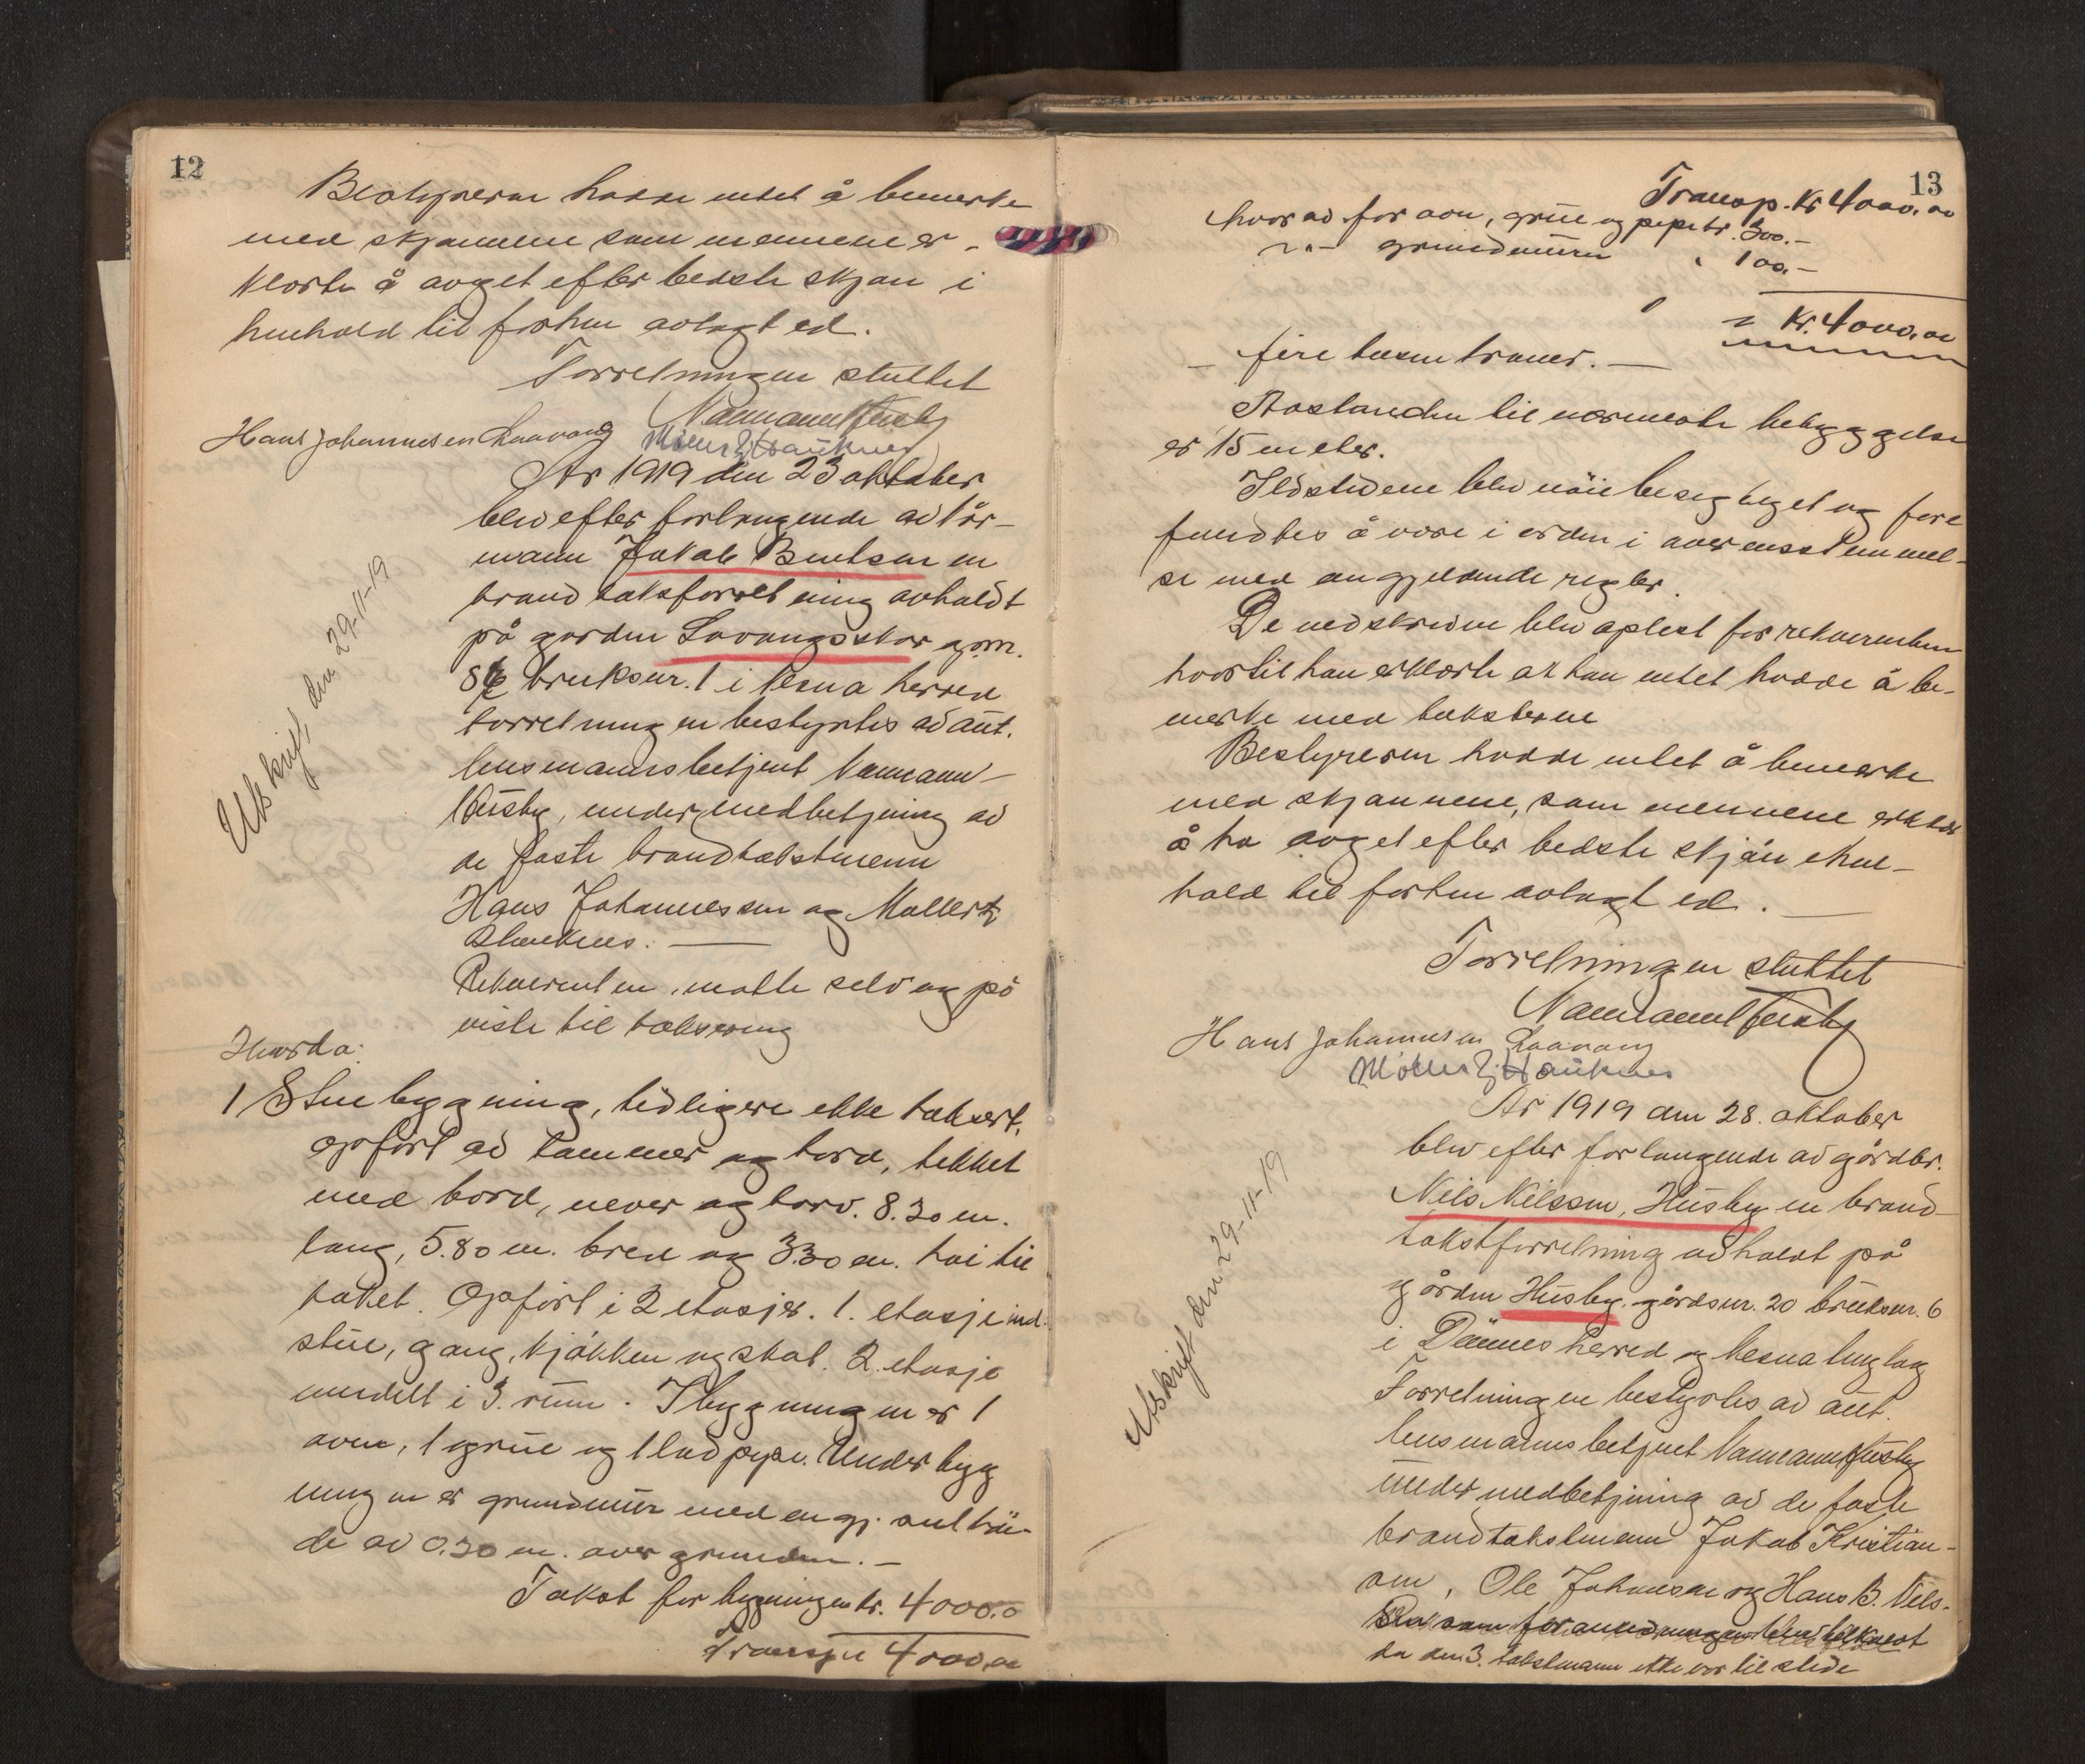 12
Bestyreren hadde intet å bemerke
med skjønnene som mennene er-
klærte å avget efter bedste skjøn i
henhold til forhen avlagt ed.
Forretningen sluttet
Hans Johannesen Laavong Normann Husby
Møllertz Hauknes
År 1919 den 23 oktober
blev efter forlangende av lår-
mann Jakob Bentsen en
brandtakstforretning avholdt
på garden Lovongsskar grn.
86 bruksnr. 1 i Nesna herred
Forretningen bestyrtes av aut.
lensmannsbetjent Normann
Husby, under medbetjening av
de faste brandtakstmenn
Hans Johannessen og Mollertz
Haukenes.
Rekvirenten møtte selv og på
viste til taksering
Utskrift, den 29-11-19
Hvorda:
1 Stuebygning, tidligere ikke taksert.
opført av tømmer og bord, tekket
med bord, never og torv. 8.30 m.
lang, 5.80 m. bred og 3.30 m. høi til
taket. Opført i 2 etasjer. 1. etasje ind.
stue, gang, kjøkken og skab. 2. etasje
inndelt i 3. rum. I bygningen er 1
oven, 1 grue og 1 lødpipe. Under byg
ningen er grundmur med en gj. snl høi-
de av 0.30 m. over grunden.
Takst for bygningen kr. 4000.0
Transp kr 4000,00
13
Transp. Kr 4000,00
hvorav for ovn, grue og pipe kr. 300.-
" " - grundmuren " 100.-
= Kr. 4000,00
- fire tusen kroner. -
Avstanden til nærmeste bebyggelse
er 15 meter.
Ildstedene blev nøie besigtiget og fore
fandtes å være i orden i overensstemmel-
se med angjeldende regler.
De nedskrevne blev oplest for rekvirenten
hvortil han erklærte at han intet hadde å be-
merke med taksterne
Bestyreren hadde intet å bemerke
med skjønnene, som mennene erklær
å ha avget efter bedste skjøn i hen-
hold til forhen avlagt ed.
Forretningen sluttet
Normann Husby
Hans Johannesen Laavong
Møllertz Hauknes
År 1919 den 28. oktober
blev efter forlangende av gårdbr.
Nils Nilssen, Husby en brand-
takstforretning avholdt på
gården Husby. gårdsnr. 20 bruksnr. 6
i Dønnes herred og Nesna tinglag
Forretningen bestyrtes av aut.
lensmannsbetjent Normann Husby
under medbetjening av de faste
brandtakstmenn Jakob Kristian-
sen, Ole Johansen og Hans B. Nils-
da den 3. takstmann ikke var til stede
Utskrift den 29-11-19